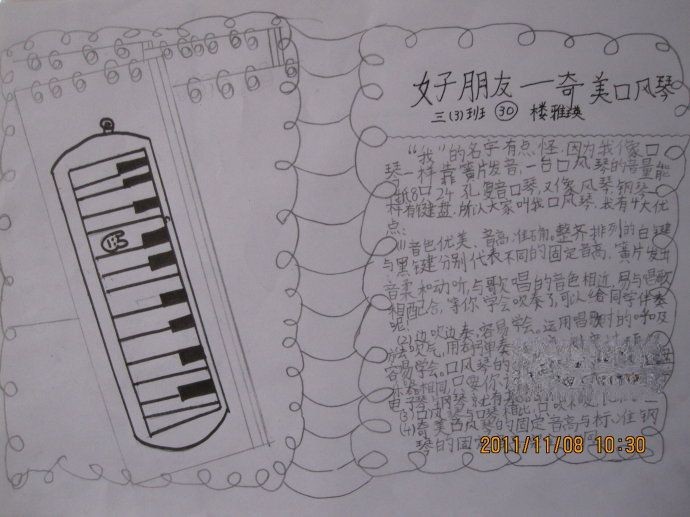 好朋友—奇美口风琴
三(3)班 30 楼雅瑛
“我”的名字有点怪,因为我像口
琴一样靠簧片发音,一台口风琴的音量能
抵8口24孔复音口琴,又像风琴钢琴一
样有键盘,所以大家叫我口风琴,我有4大优
点:
(1)音色优美、音高准确。整齐排列的白键
与黑键分别代表不同的固定音高,簧片发出
音柔和动听,与歌唱的音色相近,易与唱歌
相配合,等你学会吹奏了,可以给同学伴奏
呢!
(2)边吹边奏,容易学会。运用唱歌时的呼及
方法吹气,用右手弹奏
容易学会。口风琴的
相同,只要你
电子琴、钢琴
(3)口风琴与口琴相比,
(4)奇美口风琴的固定音高与标准钢
琴的固
2011/11/08 10:30